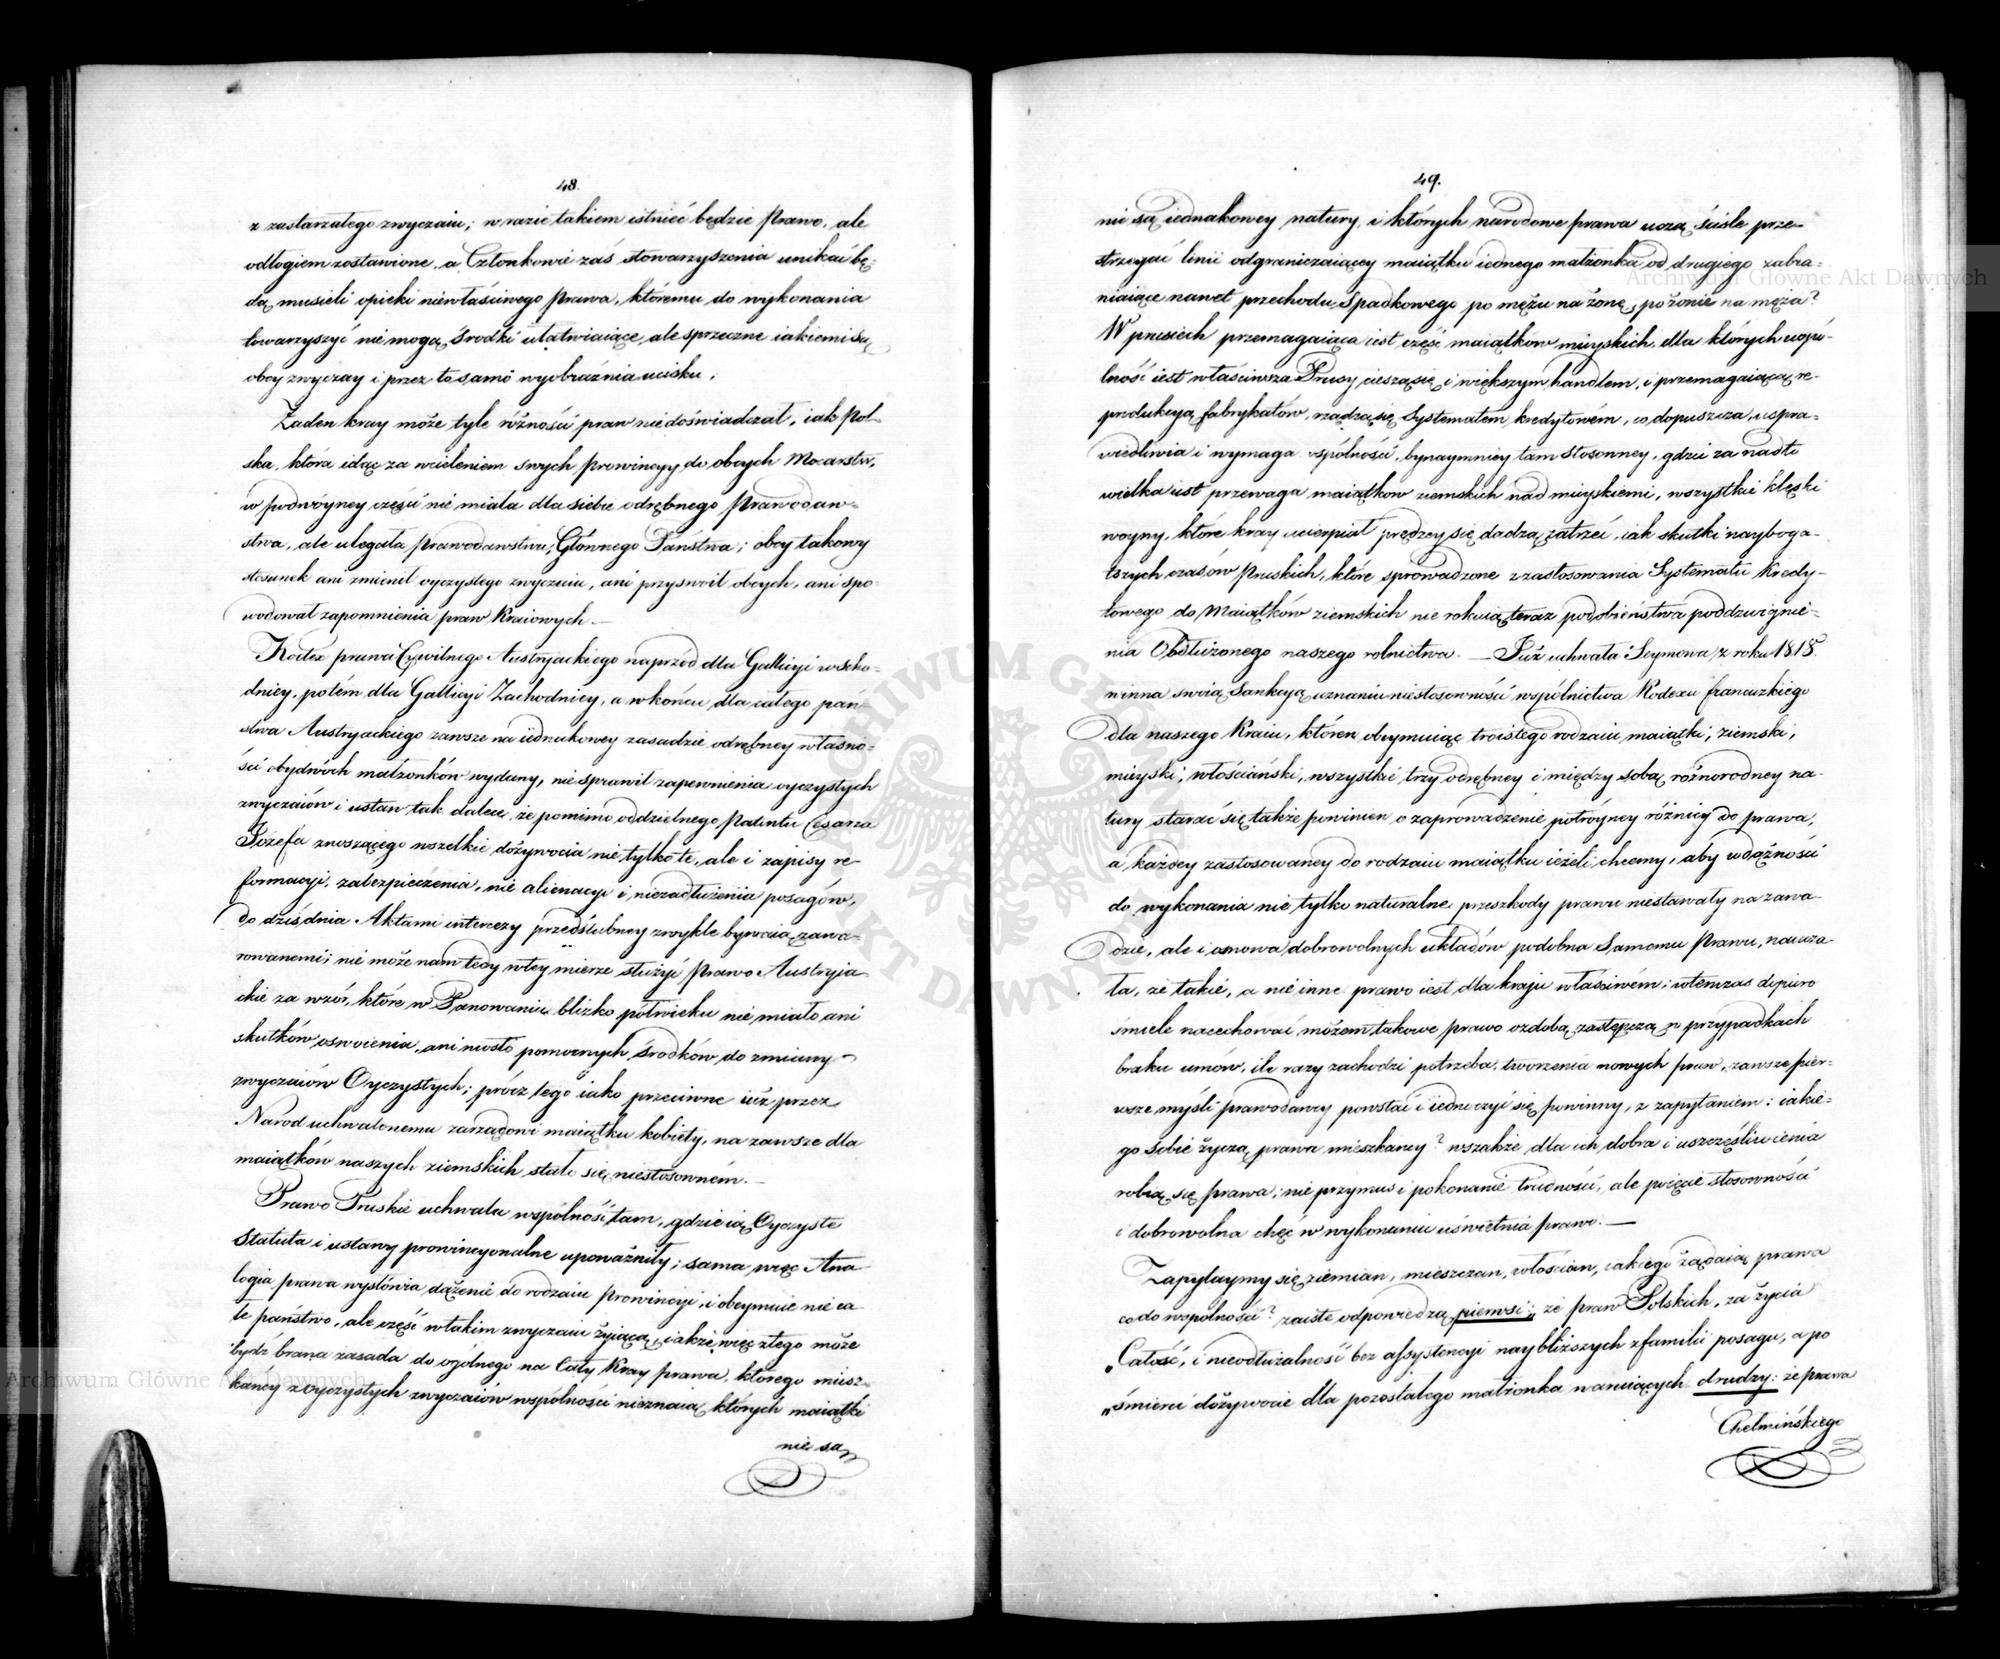 48.
z zastarzałego zwyczaiu; w razie takiem istnieć będzie Prawo, ale
odłogiem zostawione, a Członkowie zaś stowarzyszenia unikać bę-
dą musieli opieki niewłaściwego Prawa, któremu do wykonania
towarzyszyć nie mogą środki ułatwiaiące, ale sprzeczne iakiemi są
obcy zwyczay i przez to samo wyobraźnia ucisku;
Żaden kray może tyle różności praw nie doświadczał, iak Pol-
ska, która idąc za wcieleniem swych prowincyy do obcych Mocarstw,
w podwóyney części nie miała dla siebie odrębnego Prawodaw-
stwa, ale ulegała Prawodawstwu Głównego Państwa; obcy takowy
stosunek ani zmienił oyczystego zwyczaiu, ani przyswoił obcych, ani spo-
wodował zapomnienia praw Kraiowych. —
Kodex prawa Cywilnego Austryiackiego naprzód dla Gallicyi wscho-
dniey, potém dla Gallicyi Zachodniey, a w końcu dla całego pań-
stwa Austryiackiego zawsze na iednakowey zasadzie odrębney własno-
ści obydwóch małżonków wydany, nie sprawił zapewnienia oyczystych
zwyczaiów i ustaw tak dalece, że pomimo oddzielnego Patentu Cesarza
Józefa znoszącego wszelkie dożywocia nie tylko te, ale i zapisy re-
formacyi, zabezpieczenia, nie alienacyi i niezadłużenia posagów,
do dziś dnia Aktami intercyzy przedślubney zwykle bywaią zawa-
rowanemi; nie może nam tedy w tey mierze służyć Prawo Austryia-
ckie za wzór, które w Panowaniu blizko półwieku nie miało ani
skutków oswoienia, ani niosło pomocnych środków do zmiany
zwyczaiów Oyczystych; prócz tego iako przeciwne iuż przez
Naród uchwalonemu zarządowi maiątku kobiety, na zawsze dla
maiątków naszych ziemskich stało się niestosowném. —
Prawo Pruskie uchwala wspólność tam, gdzie ią Oyczyste
Statuta i ustawy prowincyonalne upoważniły; sama więc Ana-
logia prawa wysłówia dążenie do rodzaiu Prowincyi, i obeymuie nie ca-
łe państwo, ale część w takim zwyczaiu żyiącą, iakże więc z tego może
bydź brana zasada do ogólnego na Cały Kray prawa, którego miesz-
kańcy z oyczystych zwyczaiów wspólności nieznaią, których maiątki
nie są
49.
nie są iednakowey natury, i których narodowe prawa uczą ściśle prze-
strzegać linii odgraniczaiącey maiątku iednego małżonka od drugiego zabra-
niaiące nawet przechodu Spadkowego po mężu na żonę, po żonie na męża?
W prusiech przemagaiąca iest część maiątków mieyskich, dla których wspó-
lność iest właściwsza Prusy cieszą się i większym handlem, i przemagaiącą re-
produkcyą fabrykatów, rządzą się Systematem kredytowém, co dopuszcza, uspra-
wiedliwia i wymaga wspólności, bynaymniey tam stosowney, gdzie za nadto
wielka iest przewaga maiątków ziemskich nad mieyskiemi, wszystkie klęski
woyny, które kray ucierpiał prędzey się dadzą zatrzeć, iak skutki nayboga-
tszych czasów Pruskich, które sprowadzone z zastosowania Systematu Kredy-
towego do Maiątków ziemskich nie rokuią teraz podobieństwa poddzwignie-
nia Obdłużonego naszego rolnictwa. — Już uchwała Seymowa z roku 1818
winna swoią Sankcyą uznaniu niestosowności wspólnictwa Kodexu francuzkiego
dla naszego Kraiu, któren obeymuiąc troistego rodzaiu maiątki; ziemski,
mieyski, włościański, wszystkie trzy odrębney i między sobą różnorodney na-
tury starać się także powinien o zaprowadzenie potróyney różnicy do prawa,
a każdey zastosowaney do rodzaiu maiątku ieżeli chcemy, aby w dążności
do wykonania nie tylko naturalne przeszkody prawu niestawały na zawa-
dzie, ale i osnowa dobrowolnych układów podobna Samemu Prawu, naucza-
ła, że takie, a nie inne prawo iest dla kraju właściwém; wtemczas dopiero
śmiele nacechować możem takowe prawo ozdobą zastępczą w przypadkach
braku umów, ile razy zachodzi potrzeba, tworzenia nowych praw, zawsze pier-
wsze myśli prawodawcy powstać i iednoczyć się powinny, z zapytaniem: iakie-
go sobie życzą prawa mieszkańcy? wszakże dla ich dobra i uszczęśliwienia
robią się prawa; nie przymus i pokonanie trudności, ale poięcie stosowności
i dobrowolna chęć w wykonaniu uświetnia prawo. —
Zapytaymy się ziemian, mieszczan, włościan, iakiego żądaią prawa
co do wspólności? zaiste odpowiedzą pierwsi; „że praw Polskich, za życia
„Całość, i nieodłużalność bez assystencyi naybliższych z familii posagu, a po
„śmierci dożywocie dla pozostałego małżonka waruiących drudzy: że prawa
Chełmińskiego